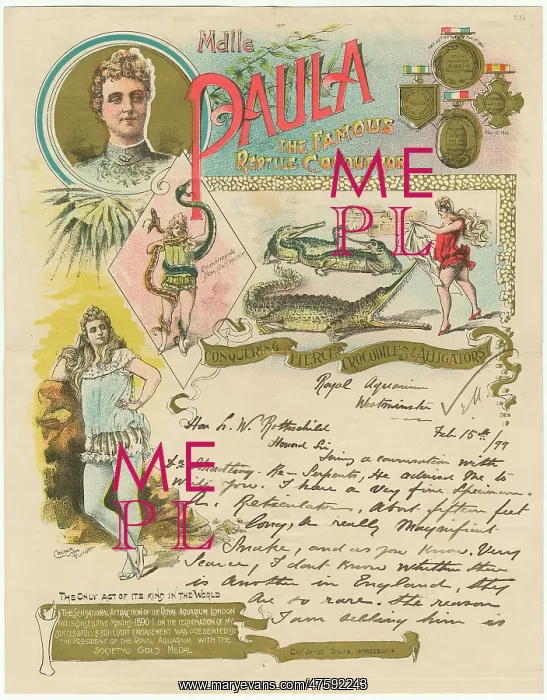 336
Mdlle
PAULA
THE FAMOUS
REPTILE CONQUEROR
ME
PL
CONQUERING FIERCE CROCODILES & ALLIGATORS
Royal Aquarium
Westminster
Feb 15th/99
Hon L. W. Rothschild
Honord Sir
Having a conversation with
Re-Serpents, He advised Me to
Write you. I have a Very fine Specimen
Reticulator, About fifteen feet
long, a really Magnificent
Snake, and as you Know, Very
Scarce, I dont Know Whether there
is Another in England, they
are so rare. The reason
I am selling him is
ME
PL
THE ONLY ACT OF ITS KIND IN THE WORLD
THE SENSATIONAL ATTRACTION OF THE ROYAL AQUARIUM LONDON
CONSECUTIVE MONTHS-1890-1. ON THE TERMINATION OF MY
SUCCESSFUL & BRILLIANT ENGAGEMENT WAS PRESENTED BY
THE PRESIDENT OF THE ROYAL AQUARIUM WITH THE
SOCIETYS GOLD MEDAL
IMPRESSARIO
www.maryevans.com/47592243